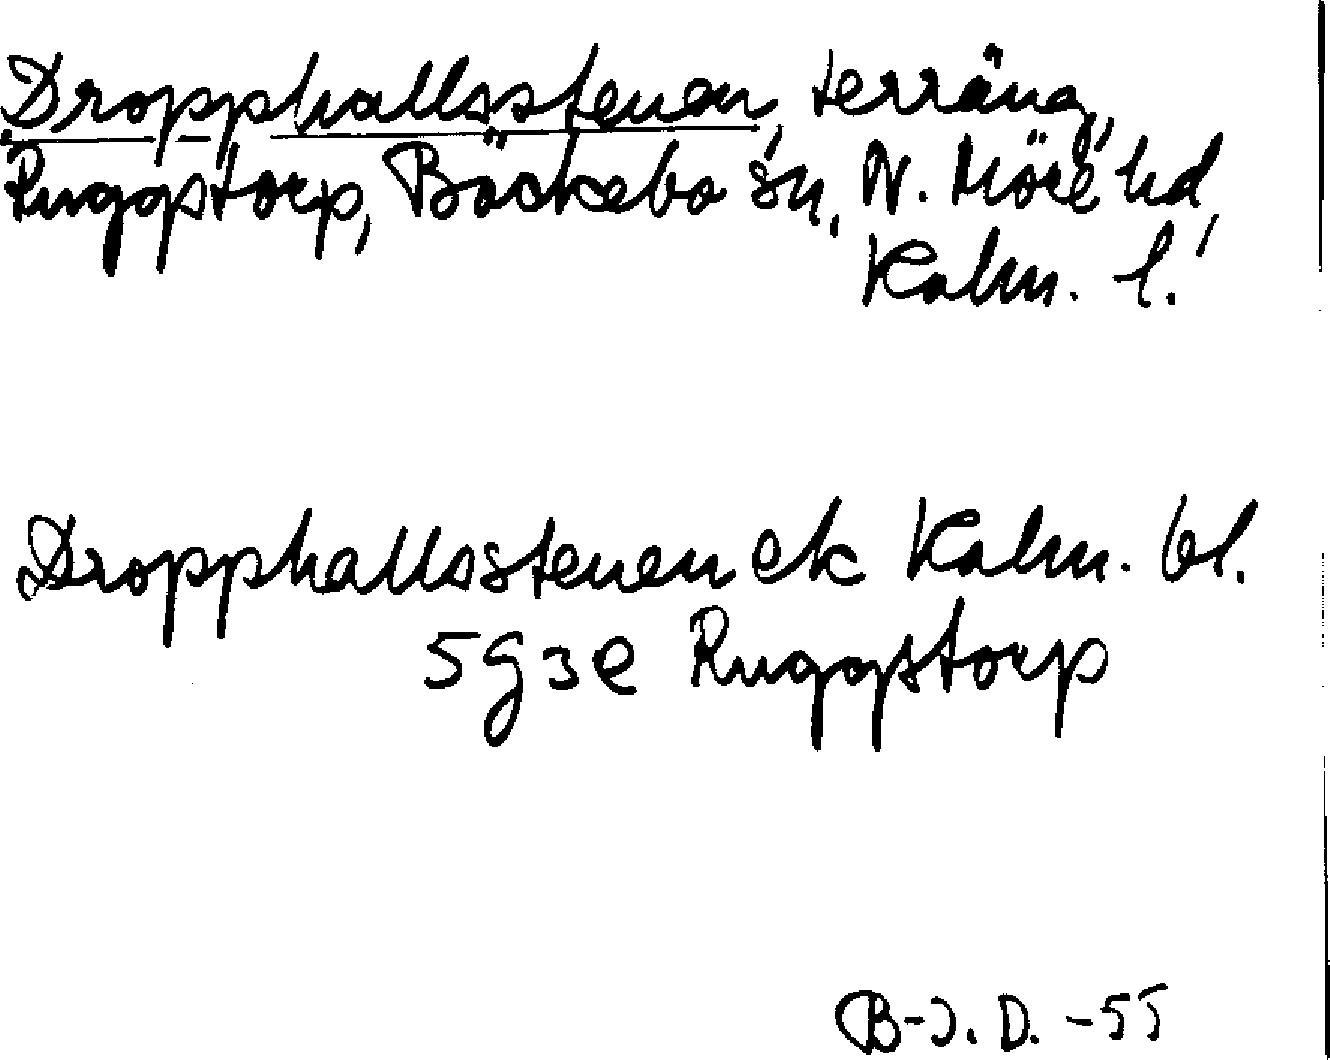 Dropphallsstenen, terräng,
Ruggstorp, Bäckebo sn, N. Möre hd,
Kalm. l.
Dropphallsstenen ek Kalm. bl.
5g3e Ruggstorp
B-J.D. -55